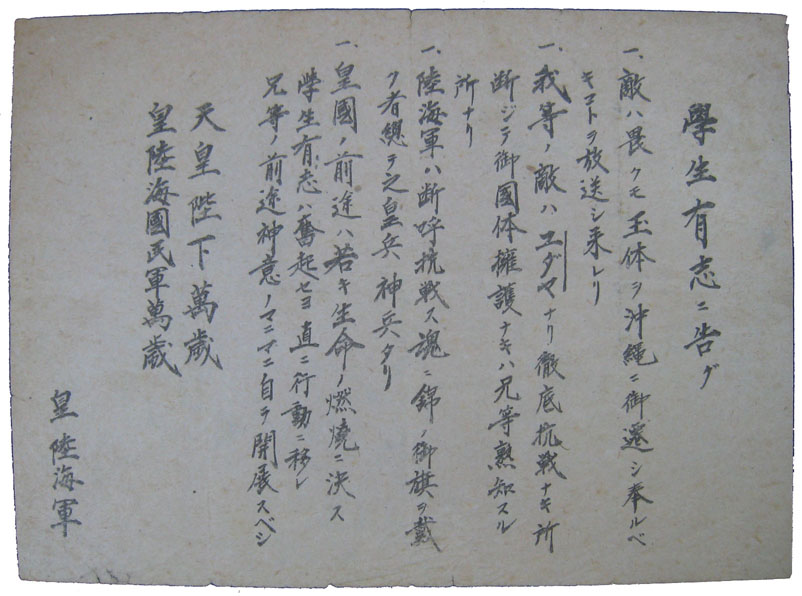 學生有志ニ告グ
一、敵ハ畏クモ玉体ヲ沖縄ニ御遷シ奉ルベ
キコトヲ放送シ来レリ
一、我等ノ敵ハユダヤナリ徹底抗戦ナキ所
断ジテ御國体擁護ナキハ兄等熟知スル
所ナリ
一、陸海軍ハ断呼抗戦ス魂ニ錦ノ御旗ヲ戴
ク者總テ之皇兵神兵タリ
一、皇國ノ前途ハ若キ生命ノ燃焼ニ決ス
學生有志ハ奮起セヨ直ニ行動ニ移レ
兄等ノ前途神意ノマニマニ自ラ開展スベシ
天皇陛下萬歳
皇陸海國民軍萬歳
皇陸海軍